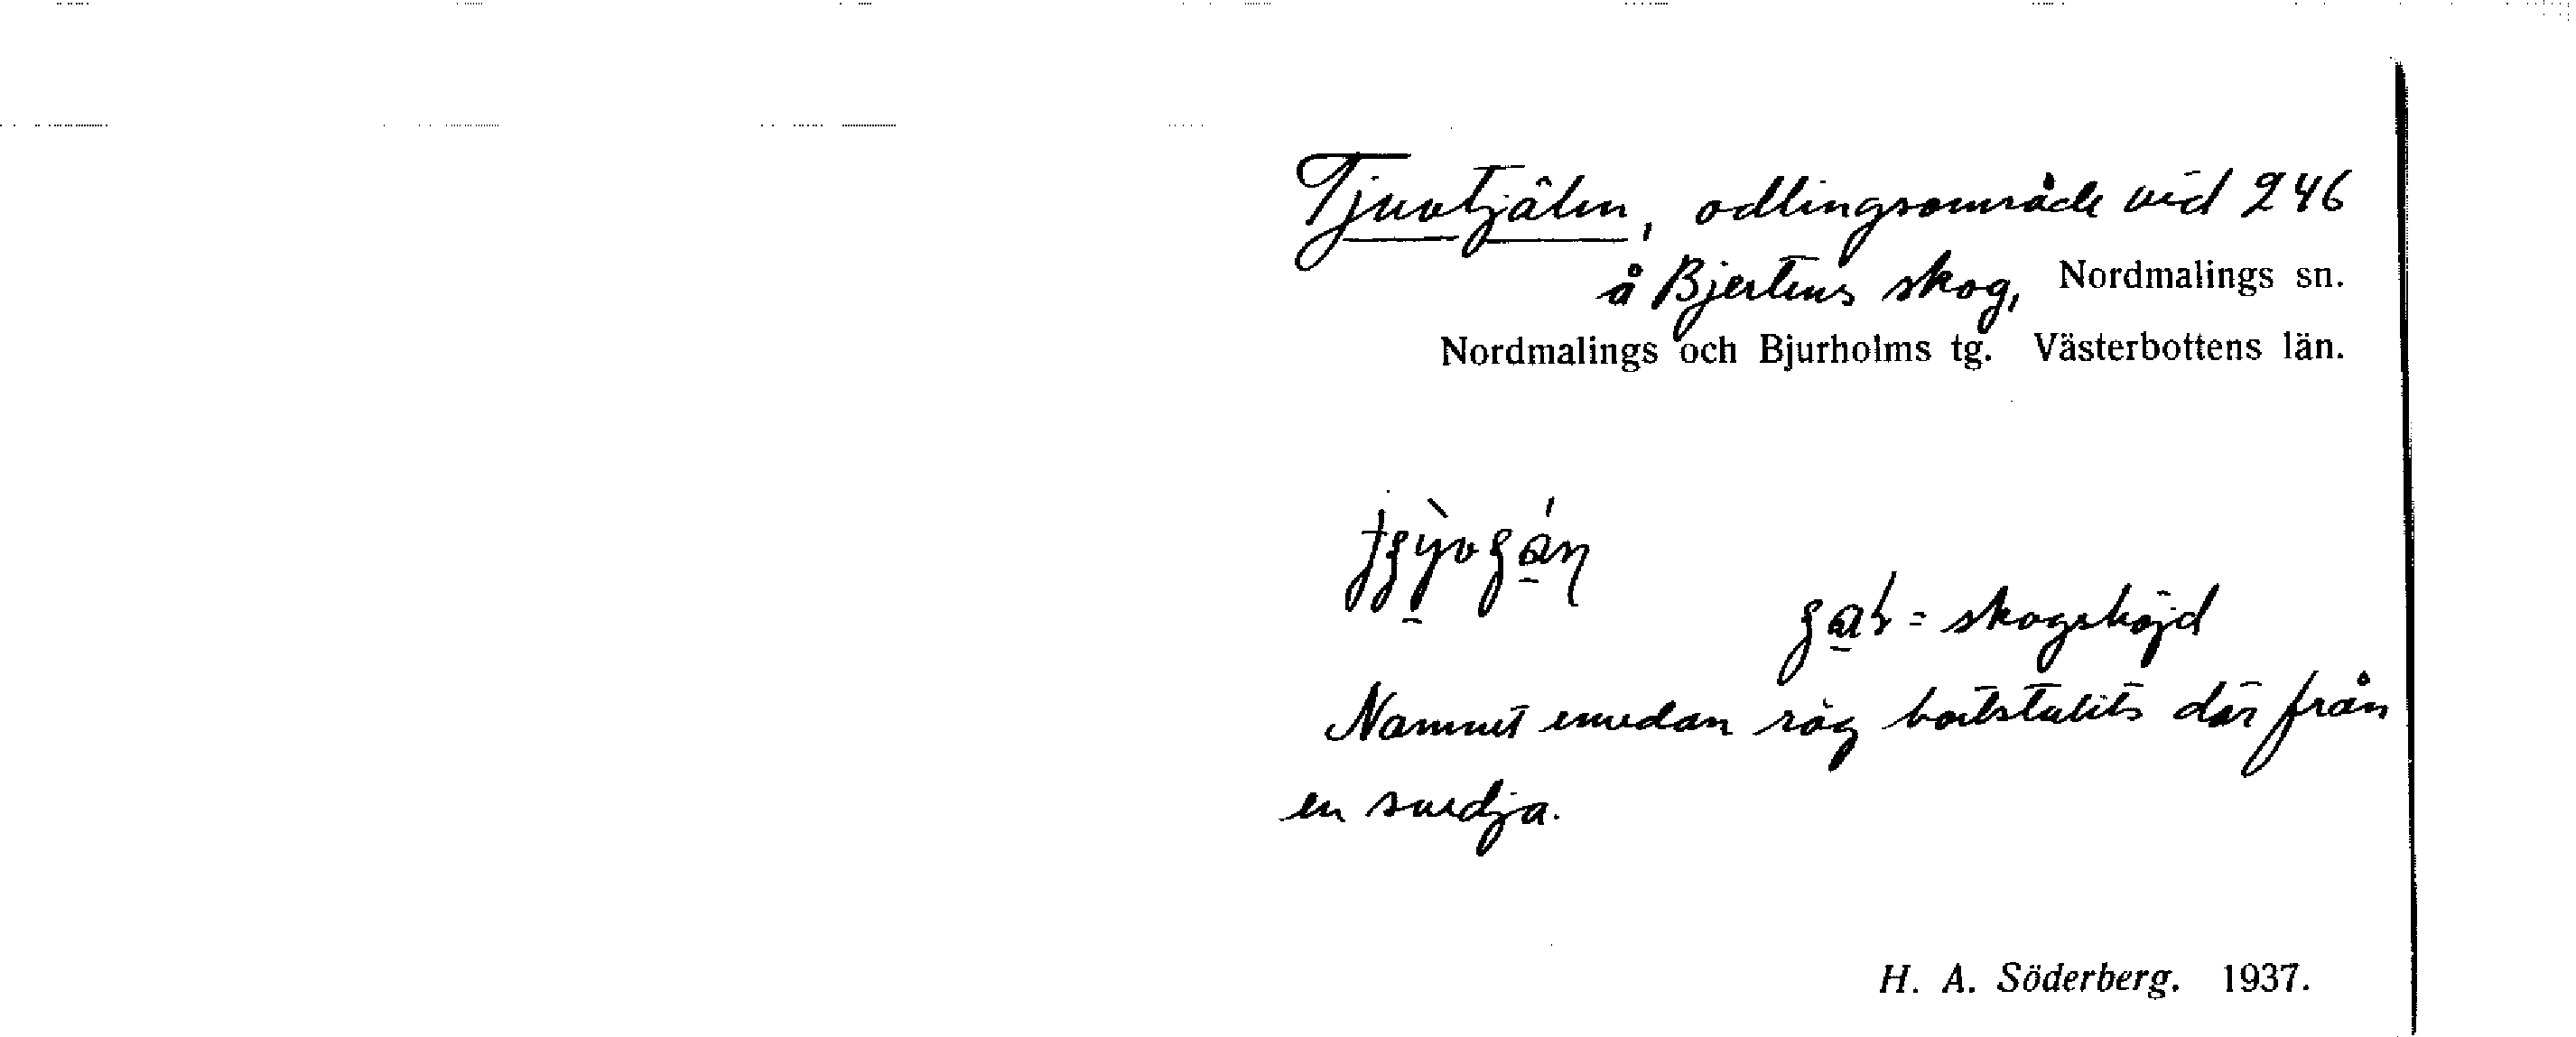 Tjuvtjâlen, odlingsområde vid 246
å Bjertens skog, Nordmalings sn.
Nordmalings och Bjurholms tg. Västerbottens län.
= skogshöjd
Namnet emedan råg bortstulits där från
en svedja.
H. A. Söderberg. 1937.